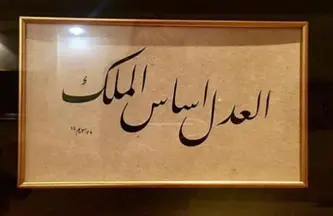 العدل اساس الملك